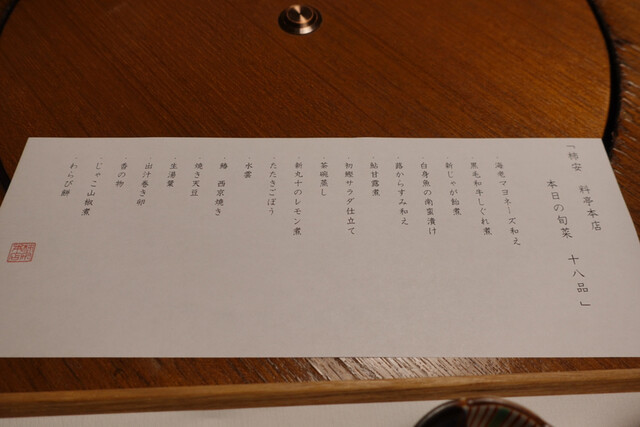 「柿安 料亭本店
本日の旬菜 十八品」
・海老マヨネーズ和え
・黒毛和牛しぐれ煮
・新じゃが飴煮
・白身魚の南蛮漬け
・蕗からすみ和え
・鮎甘露煮
・初鰹サラダ仕立て
・茶碗蒸し
・新丸十のレモン煮
・たたきごぼう
・水雲
・鰆 西京焼き
・焼き天豆
・生湯葉
・出汁巻き卵
・香の物
・じゃこ山椒煮
・わらび餅